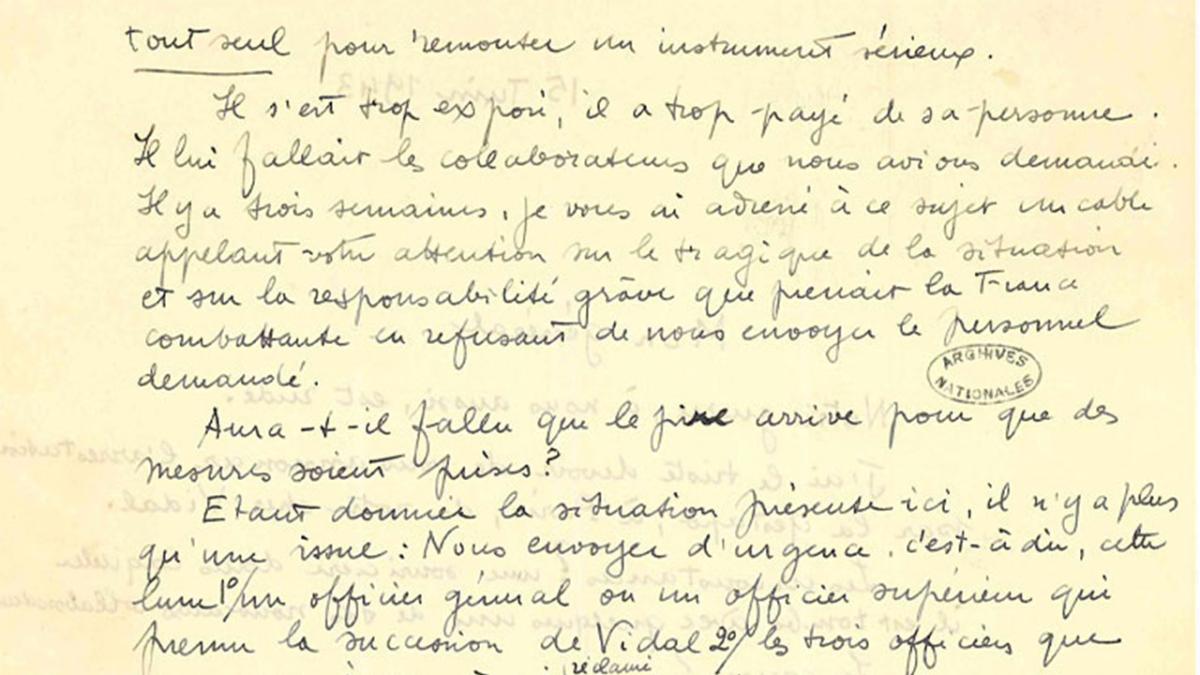 tout seul pour remonter un instrument sérieux.
Il s'est trop exposé, il a trop payé de sa personne.
Il lui fallait les collaborateurs que nous avions demandé.
Il y a trois semaines, je vous ai adressé à ce sujet un cable
appelant votre attention sur le tragique de la situation
et sur la responsabilité grâve que prenait la France
combattante en refusant de nous envoyer le personnel
demandé.
ARCHIVES
NATIONALES
Aura-t-il fallu que le pire arrive pour que des
mesures soient prises?
Etant donnée la situation présente ici, il n'y a plus
qu'une issue : Nous envoyer d'urgence, c'est-à-dire, cette
lune 1º/ un officier général ou un officier supérieur qui
prenne la succession de Vidal 2º/ les trois officiers que
réclamé